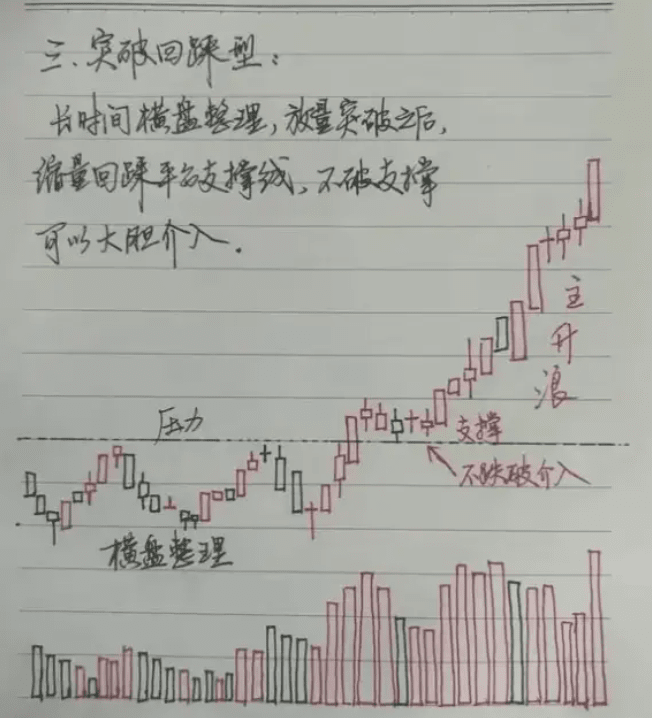 三、突破回踩型：
长时间横盘整理，放量突破之后，
缩量回踩平台支撑线、不破支撑
可以大胆介入．
主升浪
压力
支撑
不跌破介入
横盘整理